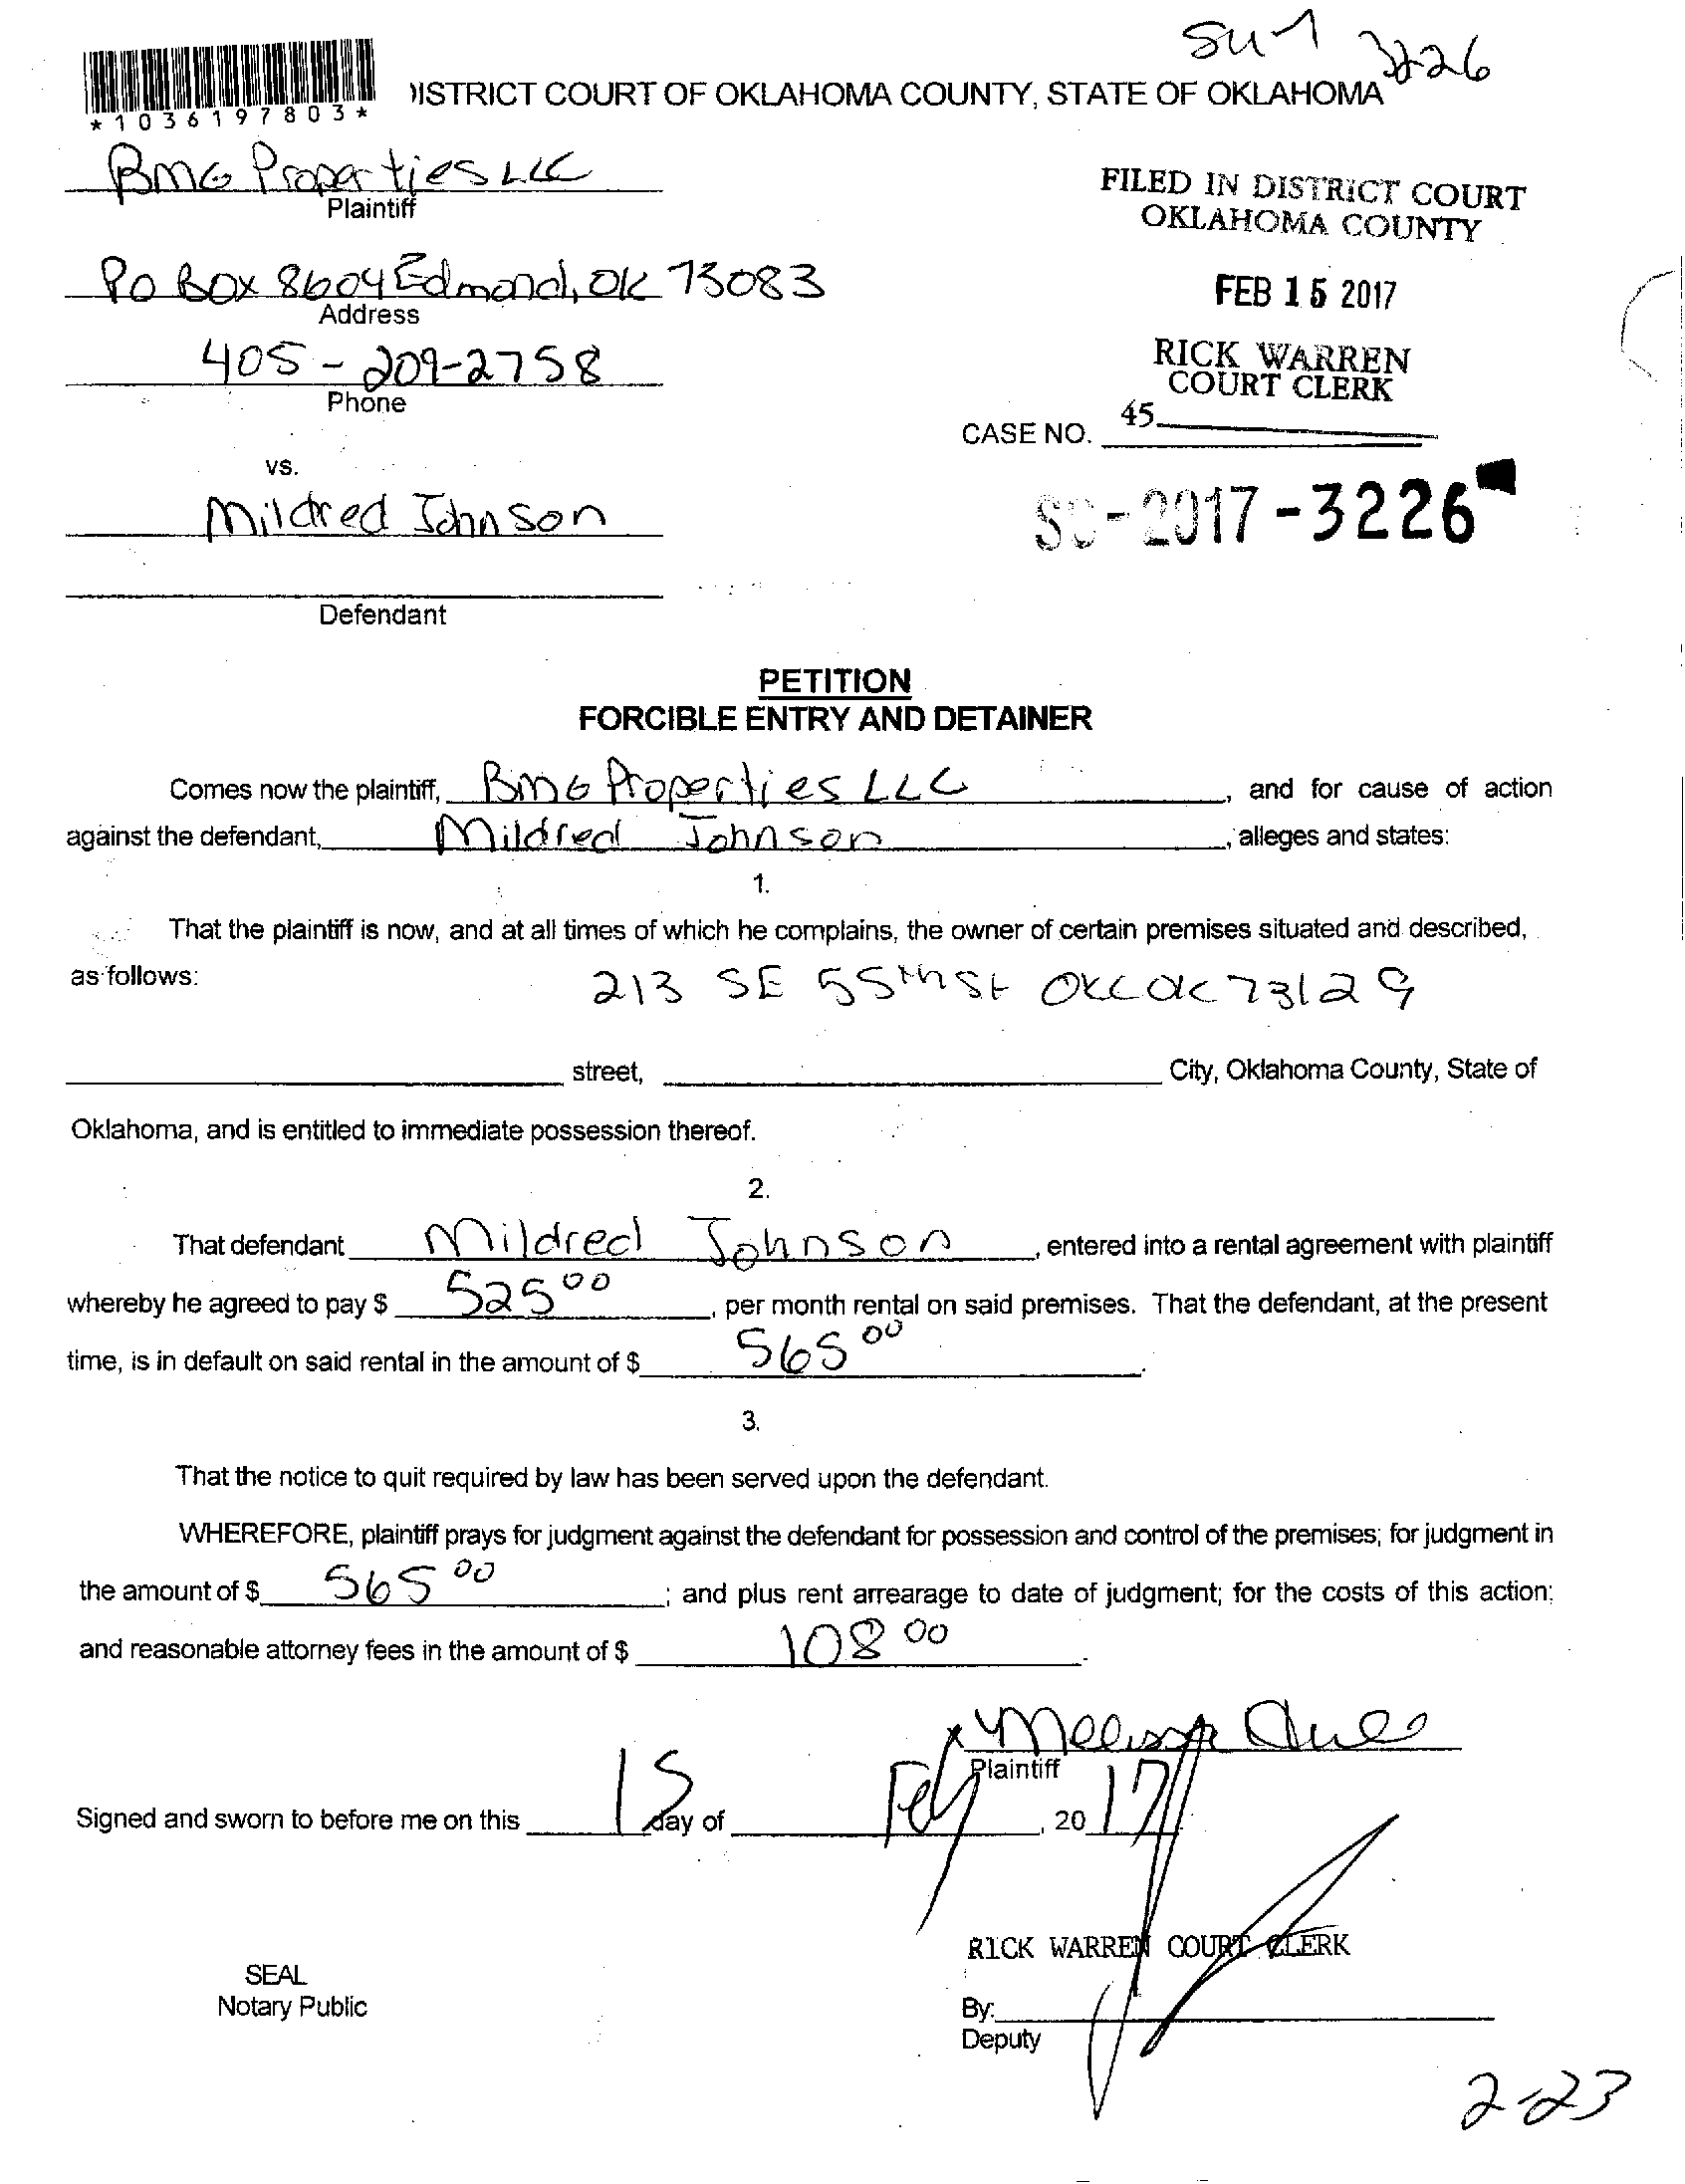 3226
*1036197803*
DISTRICT COURT OF OKLAHOMA COUNTY, STATE OF OKLAHOMA
BMG Properties LLC
Plaintiff
FILED IN DISTRICT COURT
OKLAHOMA COUNTY
PO BOX 8604 Edmond, OK 73083
Address
FEB 15 2017
405-209-2758
Phone
RICK WARREN
COURT CLERK
45
CASE NO.
vs.
Mildred Johnson
SC-2017-3226
Defendant
PETITION
FORCIBLE ENTRY AND DETAINER
Comes now the plaintiff, BMG Properties LLC, and for cause of action
against the defendant, Mildred Johnson, alleges and states:
1.
That the plaintiff is now, and at all times of which he complains, the owner of certain premises situated and described,
as follows: 213 SE 55th St OKC OK 73129
street, City, Oklahoma County, State of
Oklahoma, and is entitled to immediate possession thereof.
2.
That defendant Mildred Johnson, entered into a rental agreement with plaintiff
whereby he agreed to pay $ 525 00, per month rental on said premises. That the defendant, at the present
time, is in default on said rental in the amount of $ 565 00.
3.
That the notice to quit required by law has been served upon the defendant.
WHEREFORE, plaintiff prays for judgment against the defendant for possession and control of the premises; for judgment in
the amount of $ 565 00; and plus rent arrearage to date of judgment; for the costs of this action;
and reasonable attorney fees in the amount of $ 108 00.
Melissa
Plaintiff
Signed and sworn to before me on this 15 day of Feb, 2017
RICK WARREN COURT CLERK
SEAL
Notary Public
By:
Deputy
2-23